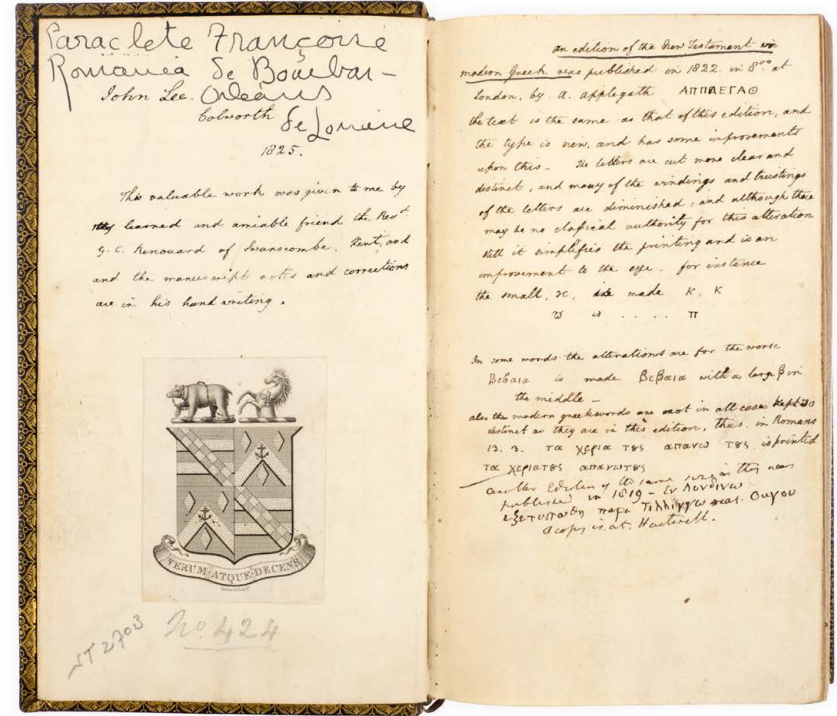 Paraclete Françoise
Romania de Bourbon-
John Lee. Orleans
Colworth de Lorraine
1825.
This valuable work was given to me by
my learned and amiable friend the Revd.
G. C. Renouard of Swanscombe, Kent, and
and the manuscript notes and corrections
are in his hand writing.
VERUM·ATQUE·DECENS
ST 2703
No 424
An edition of the New Testament in
modern Greek was published in 1822 in 8vo at
London, by A. Applegath ΑΠΠΛΕΓΑΘ
the text is the same as that of this edition, and
the type is new, and has some improvements
upon this. The letters are cut more clear and
distinct, and many of the windings and twistings
of the letters are diminished, and although there
may be no classical authority for this alteration
still it simplifies the printing and is an
improvement to the eye. for instance
the small, ϰ, are made κ, κ
ϖ is .... π
In some words the alterations are for the worse
Βεβαια is made βεβαια with a large β in
the middle –
also the modern greek words are not in all cases kept so
distinct as they are in this edition, thus, in Romans
13. 3. τα χερια τȣς απανω τȣς is printed
τα χεριατȣς απανωτȣς
another Edition of the same size as this was
published in 1819 – Εν Λονδινω
εξετυπωθη παρα Τιλλιγγω και Ουγου
A copy is at Hartwell.